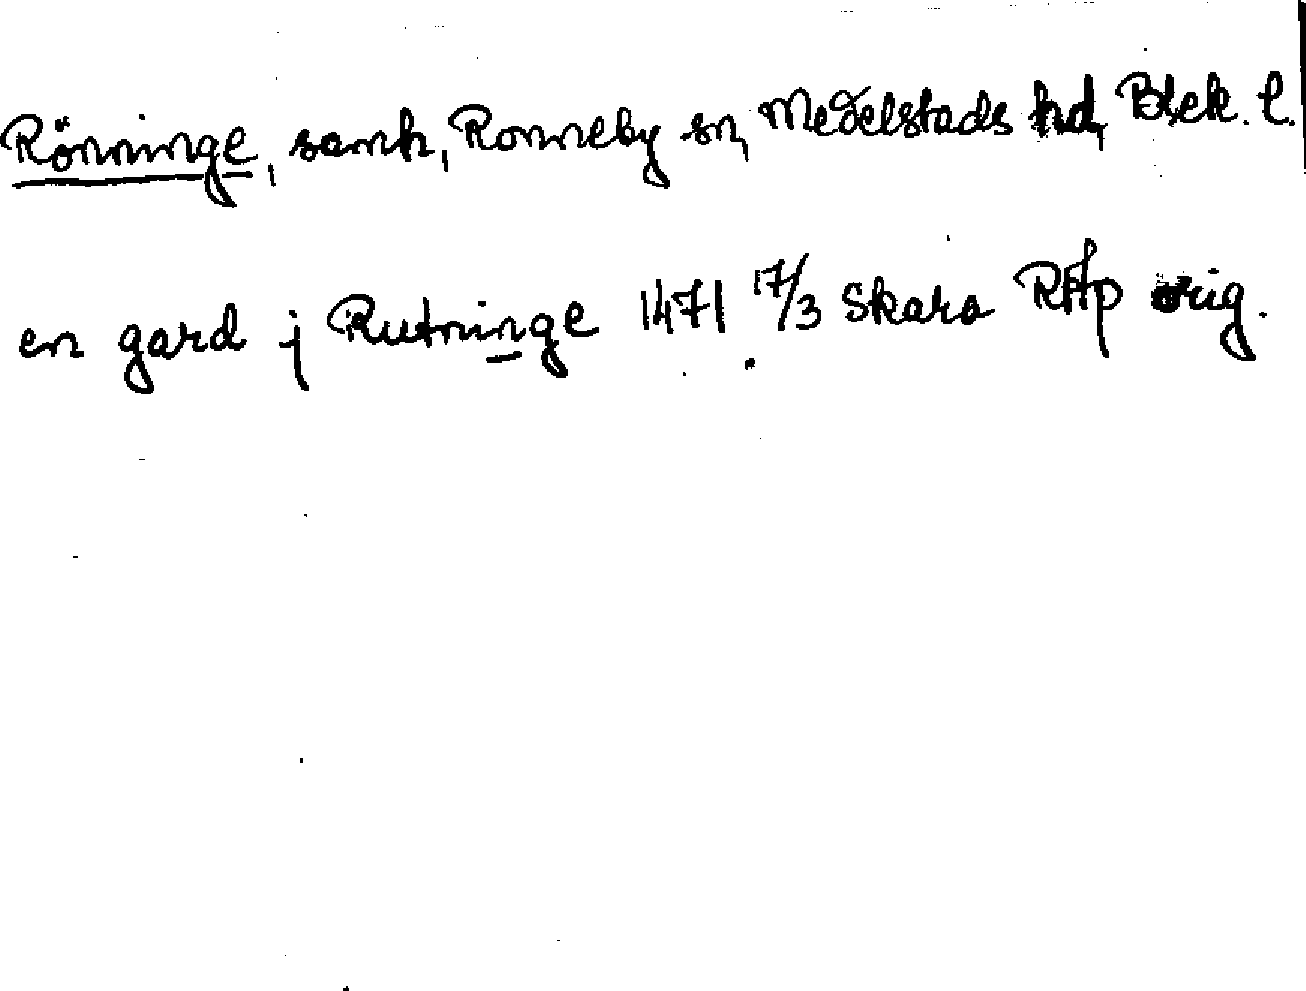 Rönninge, samh, Ronneby sn, Medelstads hd, Blek. l.
en gard j Rutninge 1471 17/3 Skara RAp orig.